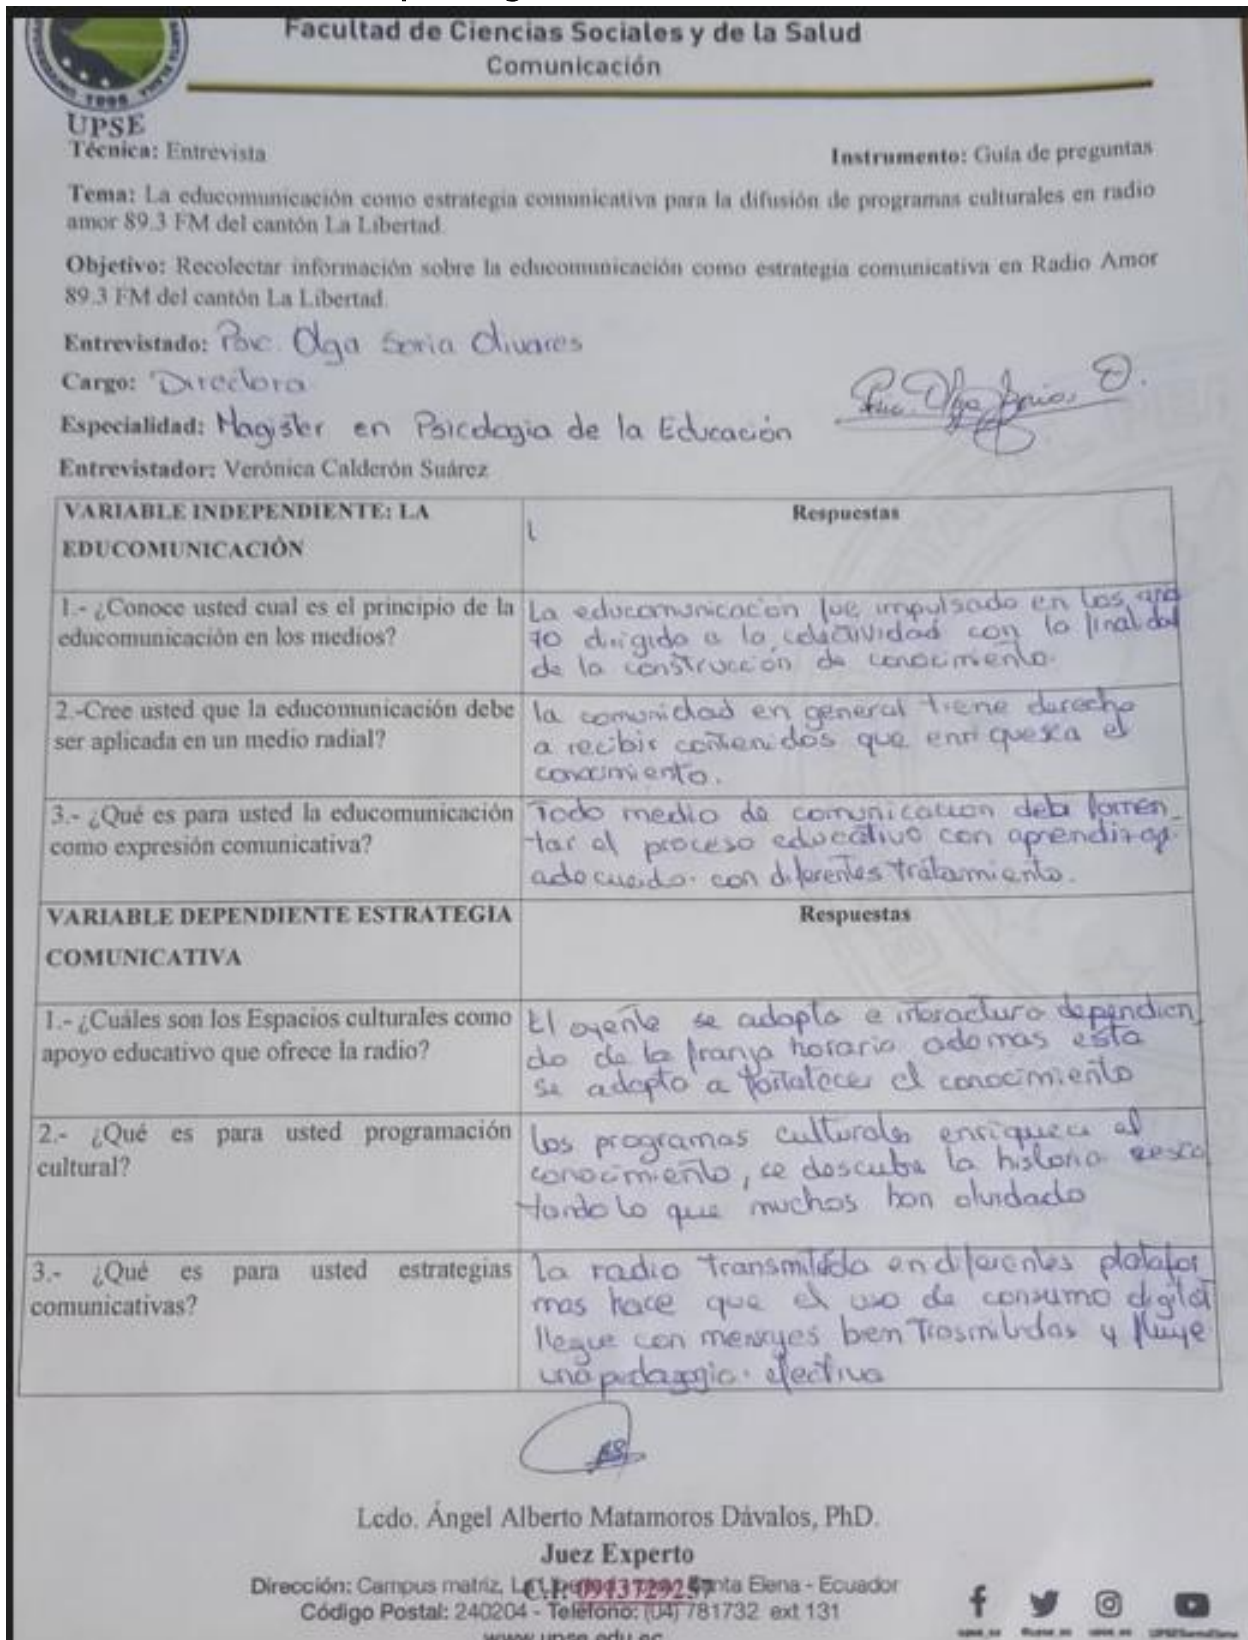 Facultad de Ciencias Sociales y de la Salud
Comunicación
UPSE
Técnica: Entrevista
Instrumento: Guía de preguntas
Tema: La educomunicación como estrategia comunicativa para la difusión de programas culturales en radio
amor 89.3 FM del cantón La Libertad.
Objetivo: Recolectar información sobre la educomunicación como estrategia comunicativa en Radio Amor
89.3 FM del cantón La Libertad.
Entrevistado: Psic. Olga Soria Olivares
Cargo: Directora
Especialidad: Magister en Psicologia de la Educación
Entrevistador: Verónica Calderón Suárez
VARIABLE INDEPENDIENTE: LA
EDUCOMUNICACIÓN
Respuestas
1.- ¿Conoce usted cual es el principio de la
educomunicación en los medios?
La educomunicación fue impulsado en los
70 dirigido a la colectividad con la finalidad
de la construcción de conocimiento.
2.-Cree usted que la educomunicación debe
ser aplicada en un medio radial?
la comunidad en general tiene derecho
a recibir contenidos que enriquesca el
conocimiento.
3.- ¿Qué es para usted la educomunicación
como expresión comunicativa?
Todo medio de comunicacion debe fomen-
tar el proceso educativo con
con diferentes tratamiento.
VARIABLE DEPENDIENTE ESTRATEGIA
COMUNICATIVA
Respuestas
1.- ¿Cuáles son los Espacios culturales como
apoyo educativo que ofrece la radio?
El oyente se adapta e dependien
do de la franja horaria ademas esta
se adapta a fortalecer el conocimiento
2.- ¿Qué es para usted programación
cultural?
Los programas culturales enriquece el
conocimiento, se descubre la historia resca
tando lo que muchos han olvidado
3.- ¿Qué es para usted estrategias
comunicativas?
la radio transmitida en diferentes platafor
mas hace que el uso de consumo digital
llegue con mensajes bien y fluye
una pedagogia efectiva
Lcdo. Ángel Alberto Matamoros Dávalos, PhD.
Juez Experto
Dirección: Campus matriz, Santa Elena - Ecuador
C.I: 0913729257
Código Postal: 240204 - Teléfono: (04) 781732 ext 131
www.upse.edu.ec